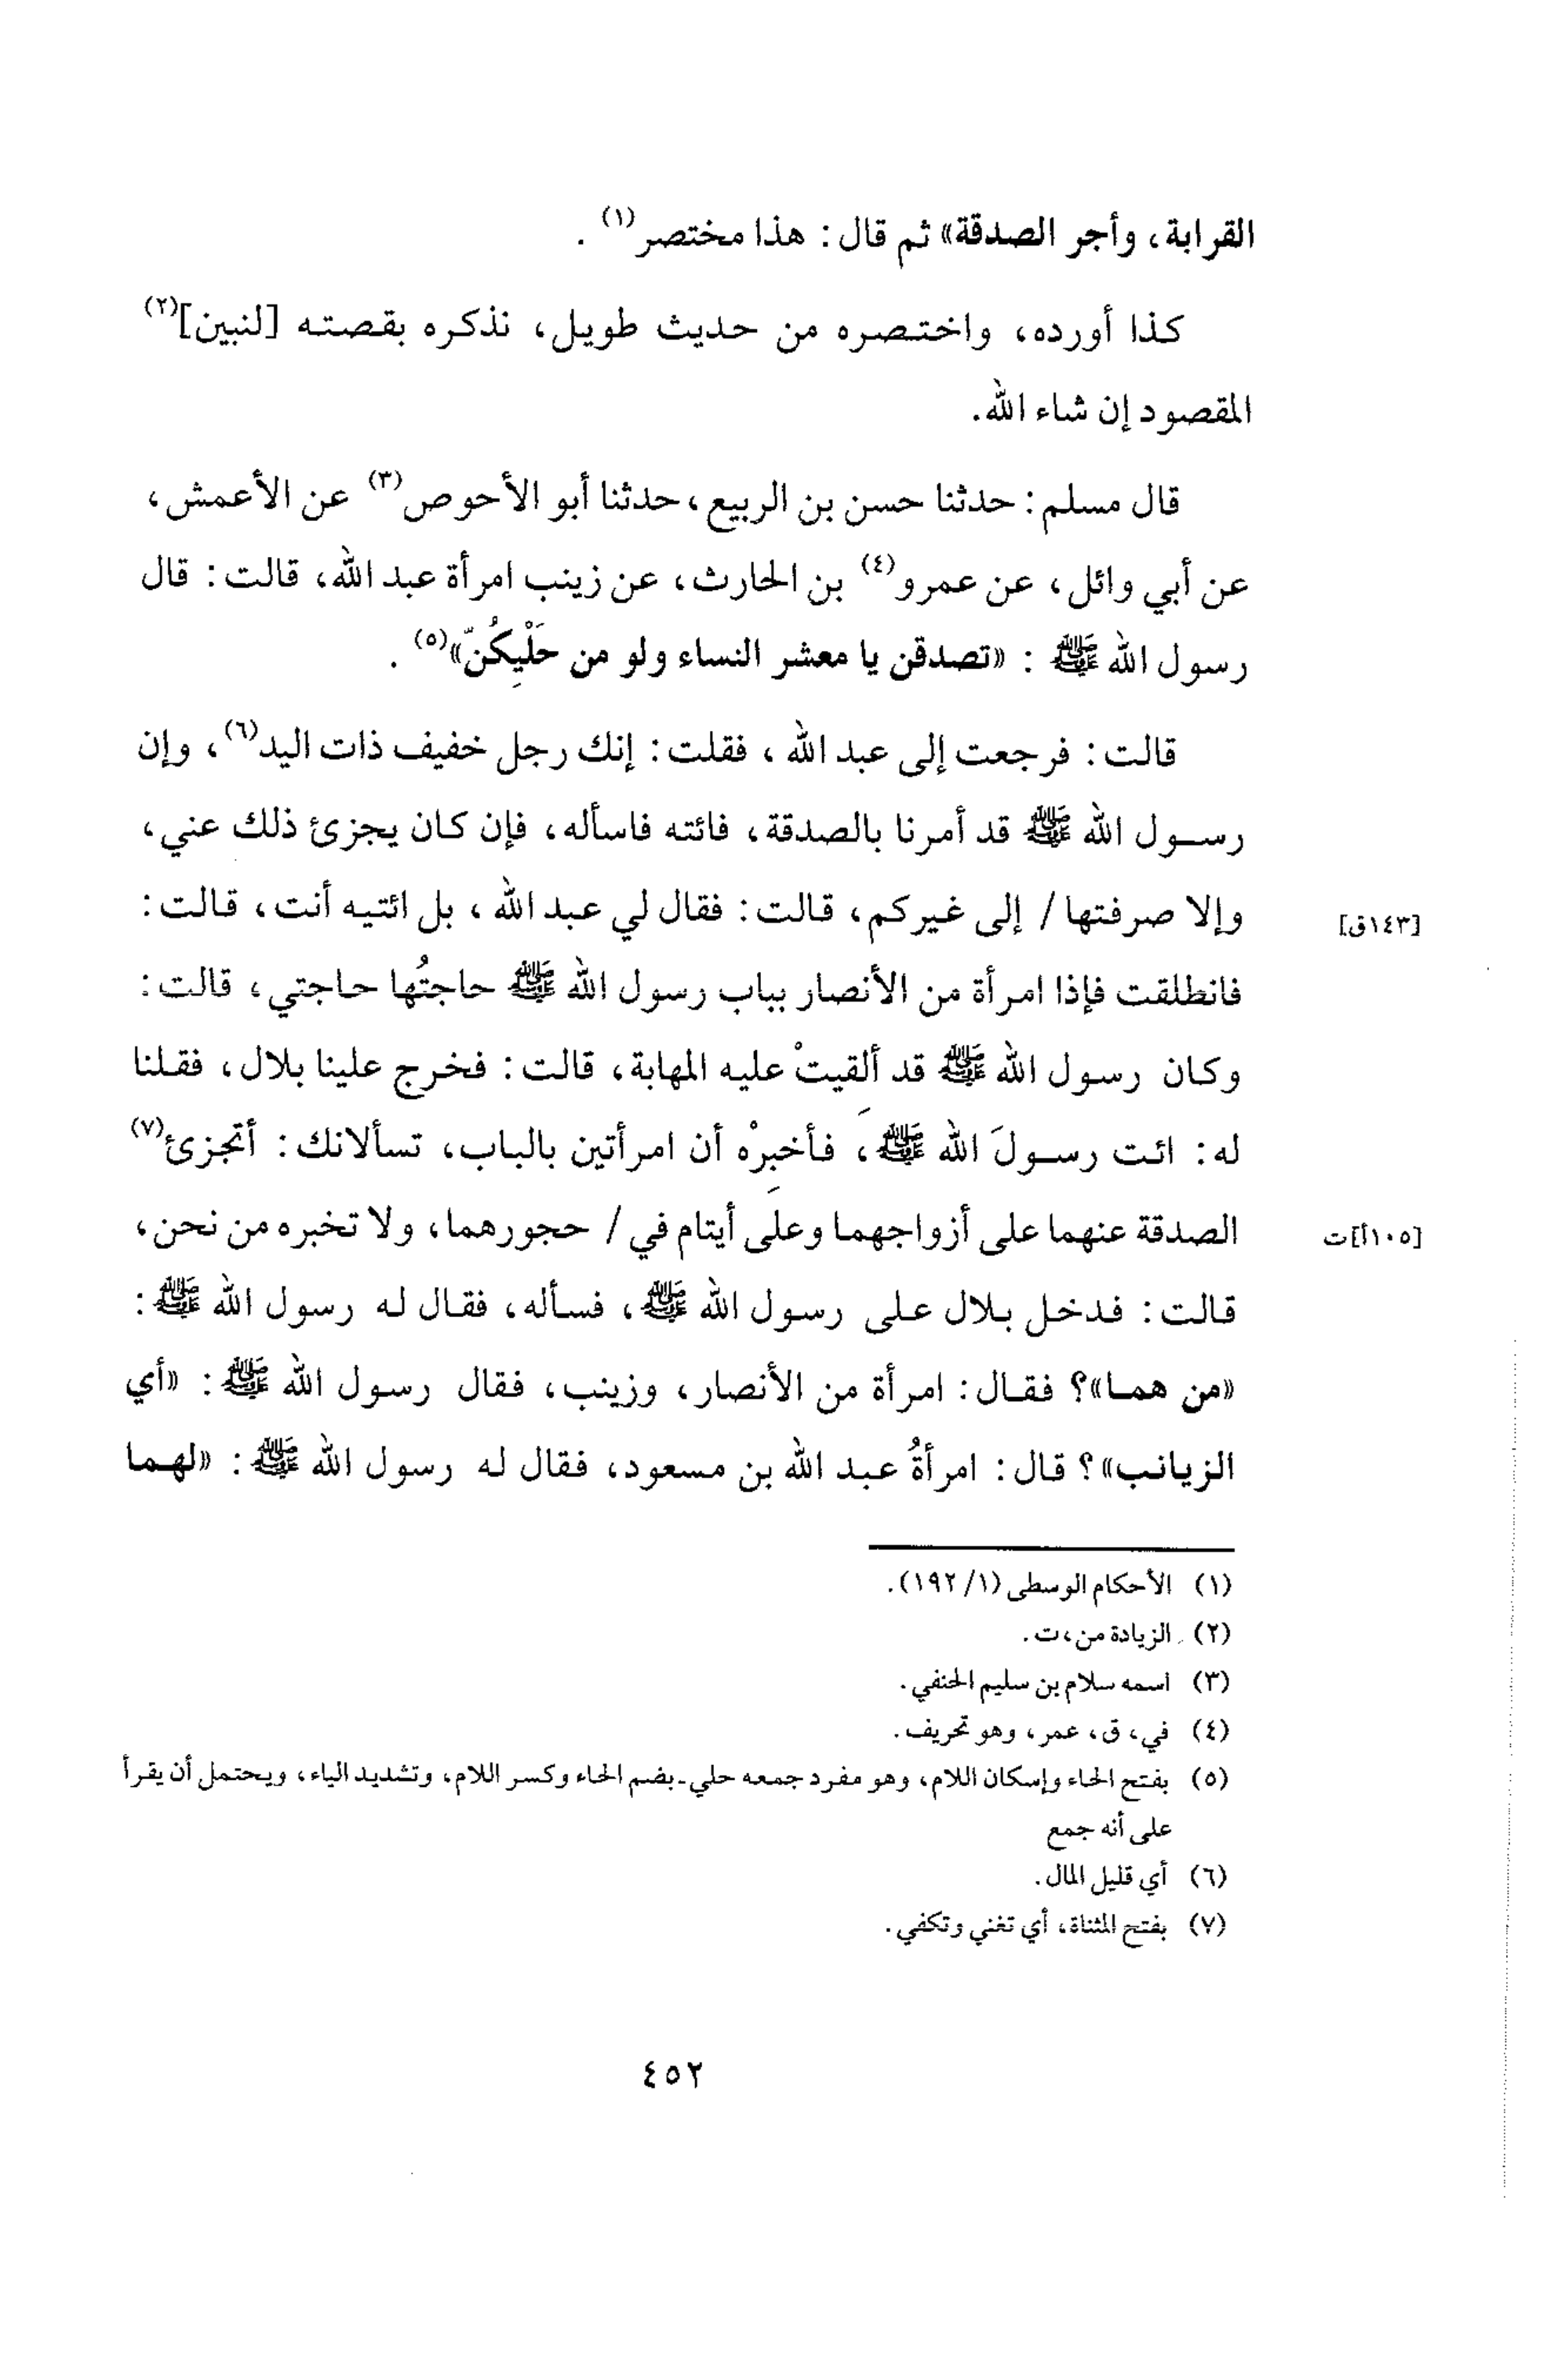 القرابة، وأجر الصدقة» ثم قال: هذا مختصر(١).
كذا أورده، واختصره من حديث طويل، نذكره بقصته [لنبين](٢)
المقصود إن شاء الله.
قال مسلم: حدثنا حسن بن الربيع، حدثنا أبو الأحوص(٣) عن الأعمش،
عن أبي وائل، عن عمرو(٤) بن الحارث، عن زينب امرأة عبد الله، قالت: قال
رسول الله ﷺ: «تصدقن يا معشر النساء ولو من حَلْيِكُنّ»(٥).
قالت: فرجعت إلى عبد الله، فقلت: إنك رجل خفيف ذات اليد(٦)، وإن
رسول الله ﷺ قد أمرنا بالصدقة، فائته فاسأله، فإن كان يجزئ ذلك عني،
وإلا صرفتها / إلى غيركم، قالت: فقال لي عبد الله، بل ائتيه أنت، قالت:
[١٤٣ق]
فانطلقت فإذا امرأة من الأنصار بباب رسول الله ﷺ حاجتُها حاجتي، قالت:
وكان رسول الله ﷺ قد ألقيتْ عليه المهابة، قالت: فخرج علينا بلال، فقلنا
له: ائت رسولَ الله ﷺ، فأخبرْه أن امرأتين بالباب، تسألانك: أتجزئ(٧)
الصدقة عنهما على أزواجهما وعلى أيتام في / حجورهما، ولا تخبره من نحن،
[١٠٥أ]ت
قالت: فدخل بلال على رسول الله ﷺ، فسأله، فقال له رسول الله ﷺ:
«من هما»؟ فقال: امرأة من الأنصار، وزينب، فقال رسول الله ﷺ: «أي
الزيانب»؟ قال: امرأةُ عبد الله بن مسعود، فقال له رسول الله ﷺ: «لهما
(١) الأحكام الوسطى (١/ ١٩٢).
(٢) الزيادة من، ت.
(٣) اسمه سلام بن سليم الحنفي.
(٤) في، ق، عمر، وهو تحريف.
(٥) بفتح الحاء وإسكان اللام، وهو مفرد جمعه حلي ـ بضم الحاء وكسر اللام، وتشديد الياء، ويحتمل أن يقرأ
على أنه جمع
(٦) أي قليل المال.
(٧) بفتح المثناة، أي تغني وتكفي.
٤٥٢